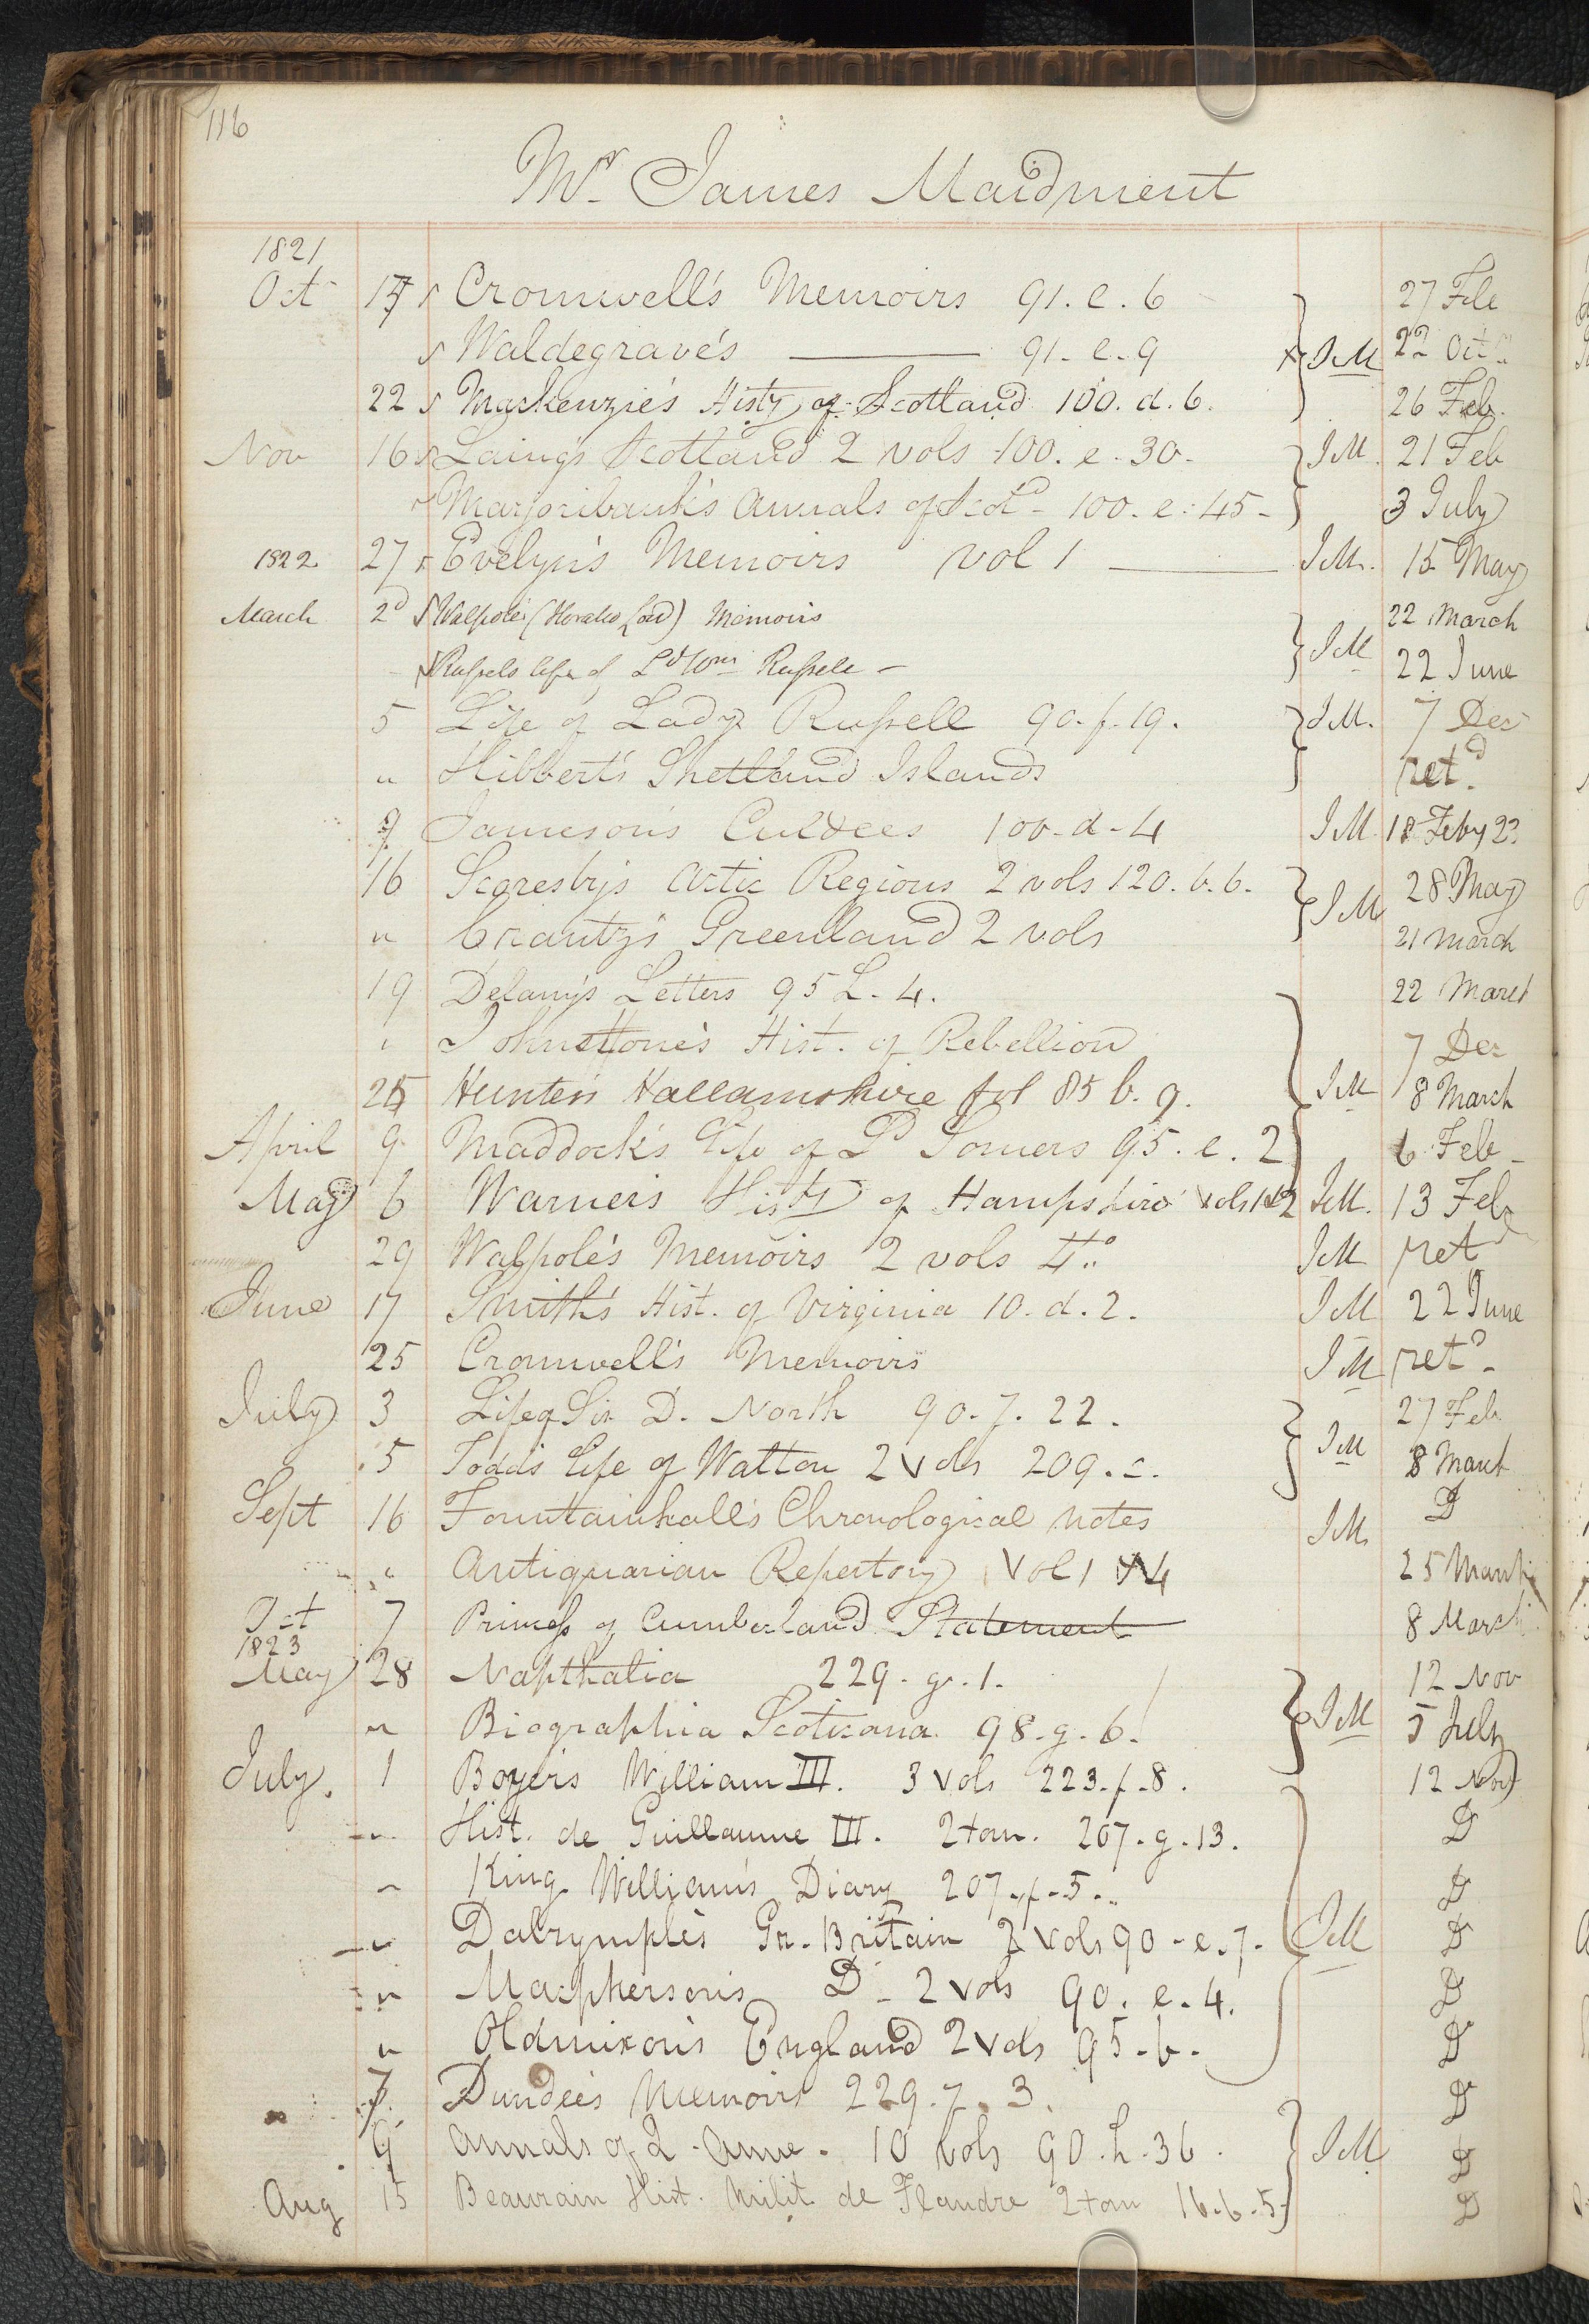 116
Mr James Maidment
1821
Oct 17 Cromwell's Memoirs 91. e. 6 27 Feb
Waldegrave's ——— 91. e. 9 JM 22 Oct
22 Mackenzie's Histy of Scotland 100. d. 6. 26 Feb.
Nov 16 Laing's Scotland 2 vols 100. e. 30. JM. 21 Feb
Marjoribank's Annals of Scotd 100. e. 45 - 3 July
1822 27 Evelyn's Memoirs vol 1 ——— JM. 15 May
March 2d Walpole (Horatio Lord) Memoirs 22 March
Russels life of Ld Wm Russell - JM 22 June
5 Life of Lady Russell 90. f. 19. JM. 7 Dec
" Hibbert's Shetland Islands retd.
9 Jamieson's Culdees 100. d. 4 JM. 18 Feby 23
16 Scoresby's Artic Regions 2 vols 120. b. 6. JM 28 May
" Crantz's Greenland 2 vols 21 March
19 Delany's Letters 95 L. 4. 22 March
" Johnstone's Hist. of Rebellion 7 Dec
25 Hunter's Hallamshire fol 85 b. 9. JM 8 March
April 9 Maddock's Life of Ld Somers 95. e. 2 6 Feb
May 6 Warner's Histy of Hampshire vols 1 & 2 JM. 13 Feby
29 Walpole's Memoirs 2 vols 4to JM retd
June 17 Smith's Hist. of Virginia 10. d. 2. JM 22 June
25 Cromwell's Memoirs JM retd.
July 3 Life of Sir D. North 90. 7. 22. 27 Feb
5 Todd's Life of Walton 2 vols 209. c. JM 8 March
Sept 16 Fountainhall's Chronological Notes JM D
" Antiquarian Repertory Vol 1 & 4 25 March
Oct 7 Princess of Cumberland Statement 8 March
1823
May 28 Napthalia 229. g. 1. 12 Nov
" Biographia Scoticana 98. g. 6. JM 5 July
July. 1 Boyer's William III. 3 vols 223. f. 8. 12 Nov
" Hist. de Guillaume III. 2 tom. 207. g. 13. D
" King William's Diary 207. f. 5. D
" Dalrymple's Gr. Britain 3 vols 90. e. 7. JM D
" Macpherson's Do 2 vols 90. e. 4. D
" Oldmixon's England 2 vols 95. b. D
7 Dundee's Memoirs 229. 7. 3. D
" 9 Annals of Q. Anne. 10 vols 90. h. 36. JM D
Aug 15 Beaurain Hist. Milit. de Flandre 2 tom 16. b. 5. D